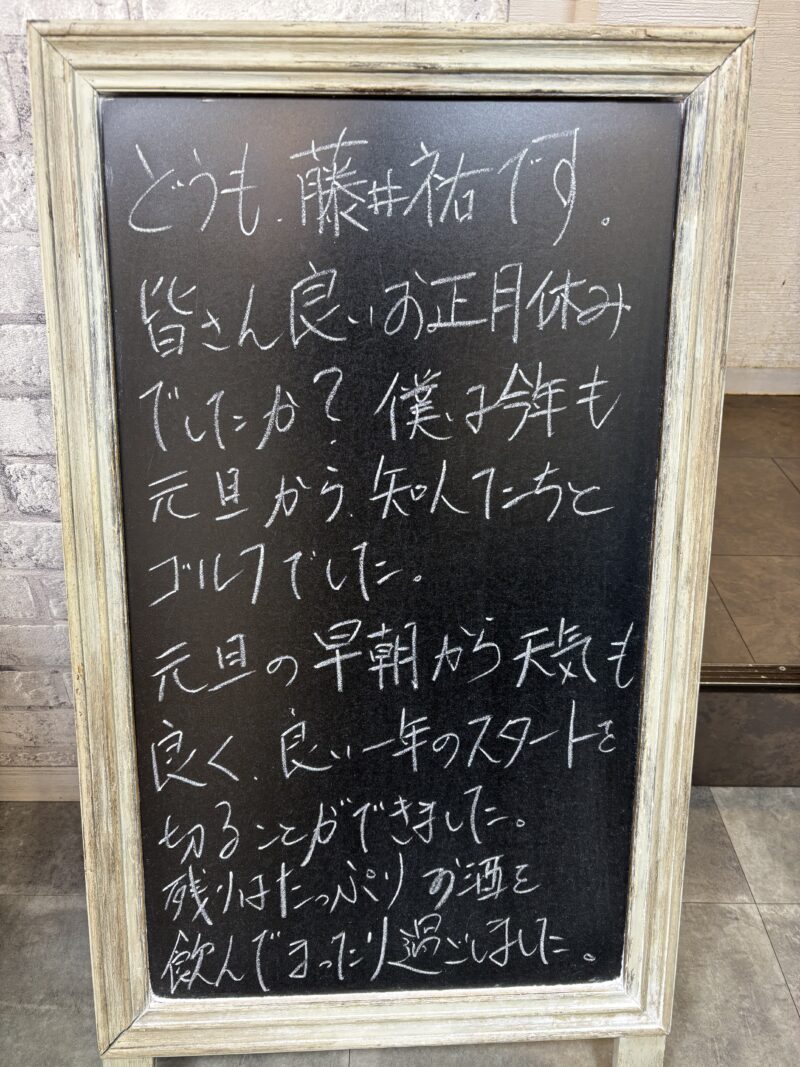 どうも、藤井祐です。
皆さん良いお正月休み
でしたか？僕は今年も
元旦から、知人たちと
ゴルフでした。
元旦の早朝から天気も
良く、良い一年のスタートを
切ることができました。
残りはたっぷりお酒を
飲んでまったり過ごしました。